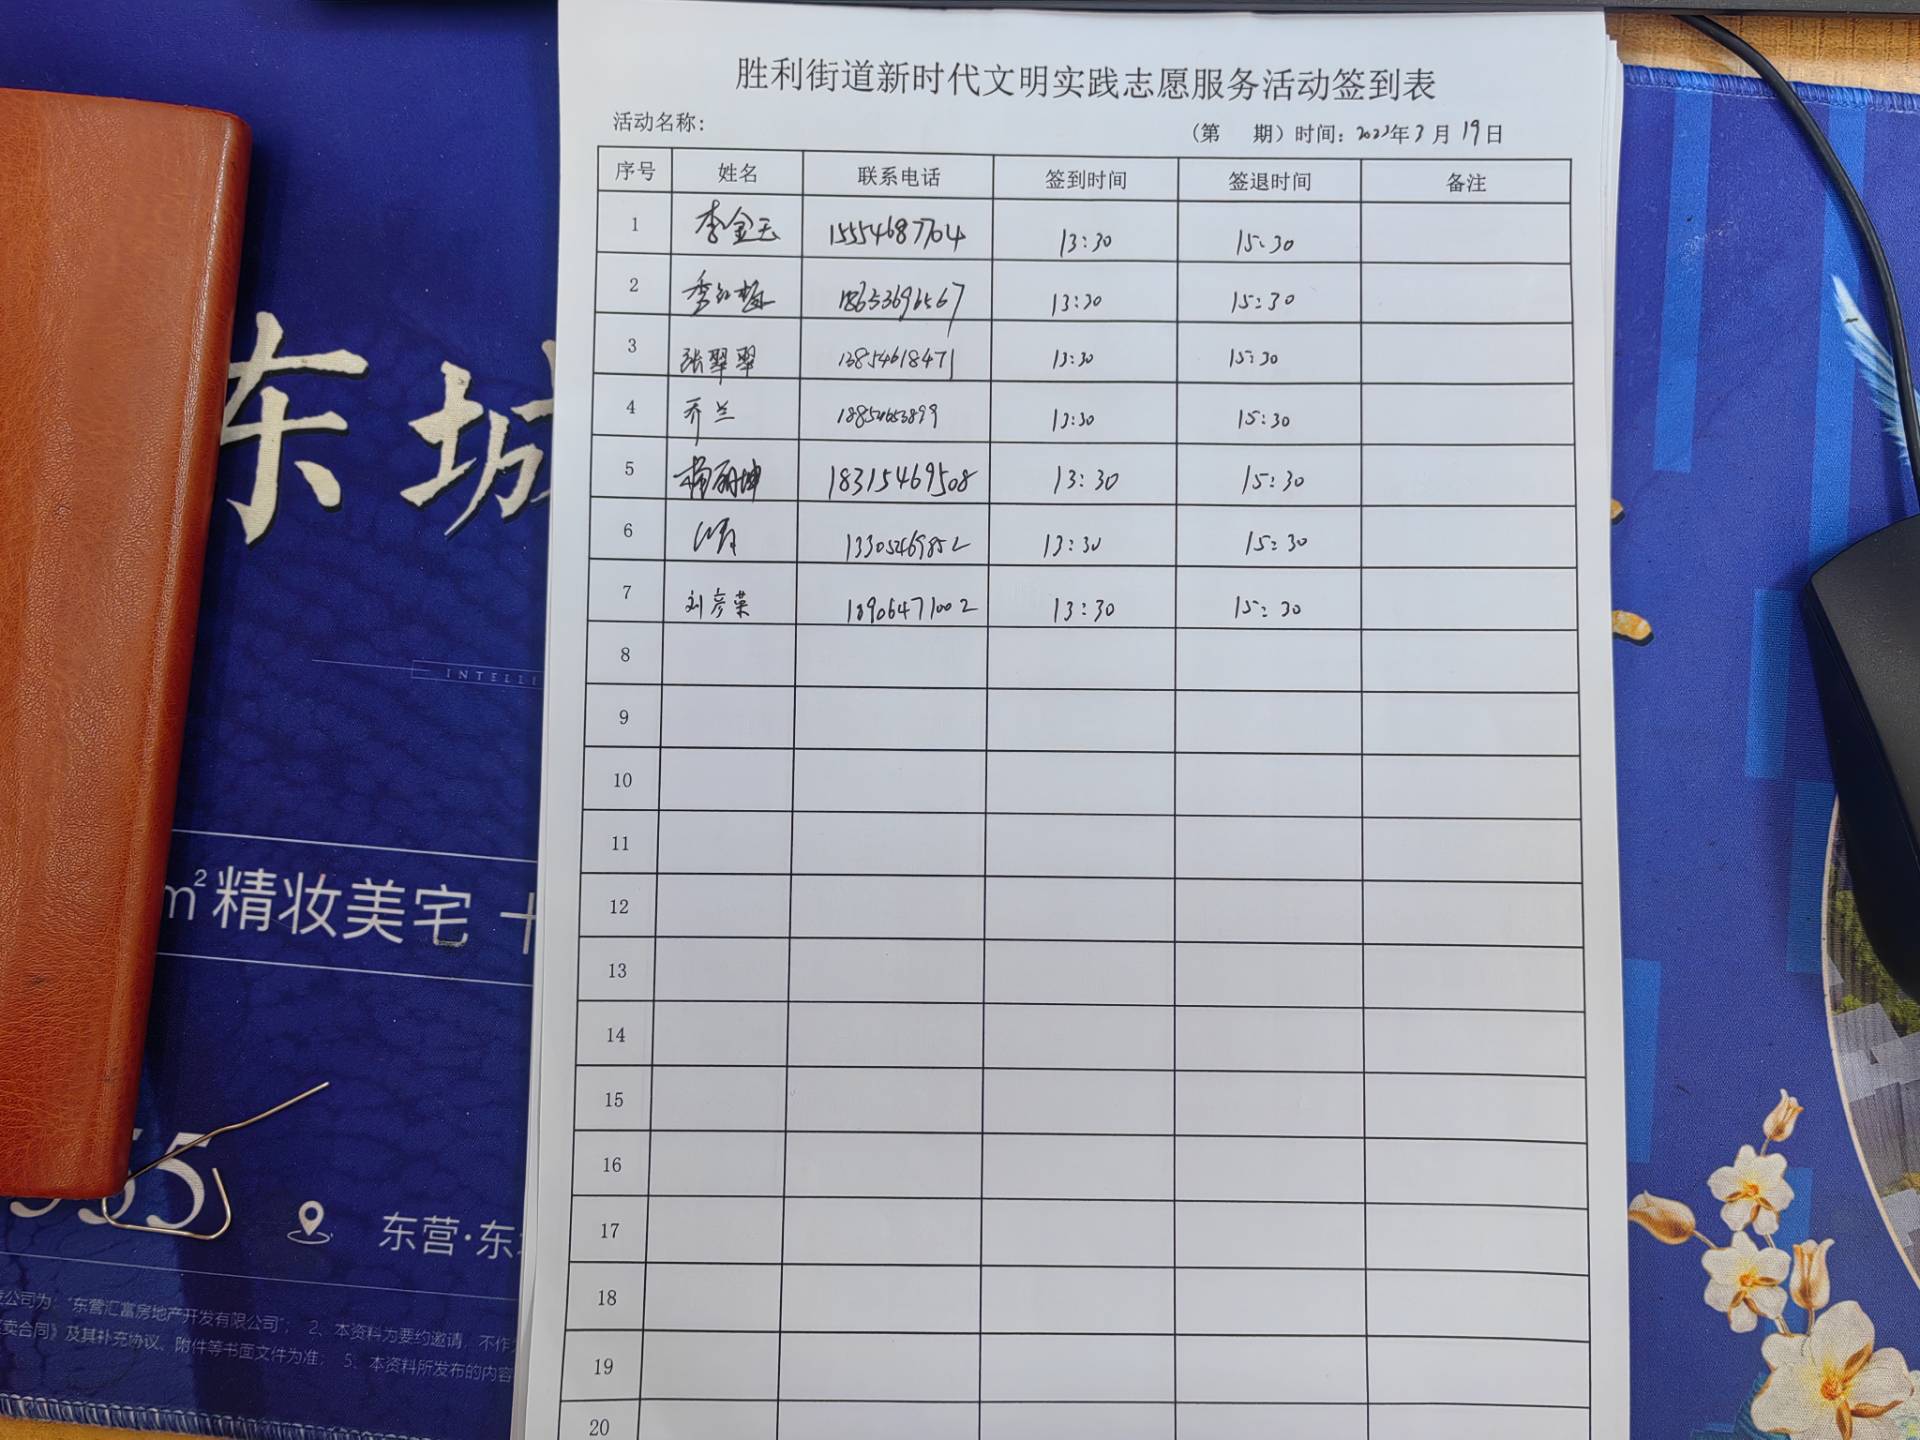 胜利街道新时代文明实践志愿服务活动签到表
活动名称:
（第 期）时间: 2023年3月19日
序号 姓名 联系电话 签到时间 签退时间 备注
1 李金玉 15554687704 13:30 15:30
2 李红梅 18653696567 13:30 15:30
3 张翠翠 13854618471 13:30 15:30
4 乔兰 18854653899 13:30 15:30
5 18315469508 13:30 15:30
6 13305469852 13:30 15:30
7 刘彦荣 18906471002 13:30 15:30
8
9
10
11
12
13
14
15
16
17
18
19
20
东城
INTELLI
m²精妆美宅 十
55
东营·东
公司为: "东营汇富房地产开发有限公司"; 2、本资料为要约邀请, 不作
卖合同》及其补充协议、附件等书面文件为准; 5、本资料所发布的内容